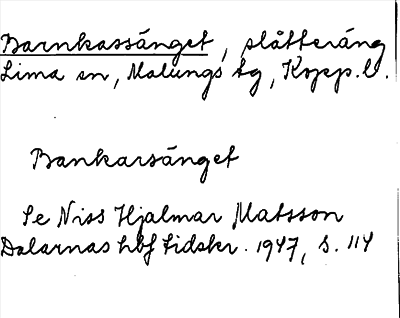 Barnkassänget, slåtteräng
Lima sn, Malungs tg, Kopp. l.
Bankarsänget
Se Niss Hjalmar Matsson
Dalarnas hbf tidskr. 1947, s. 114